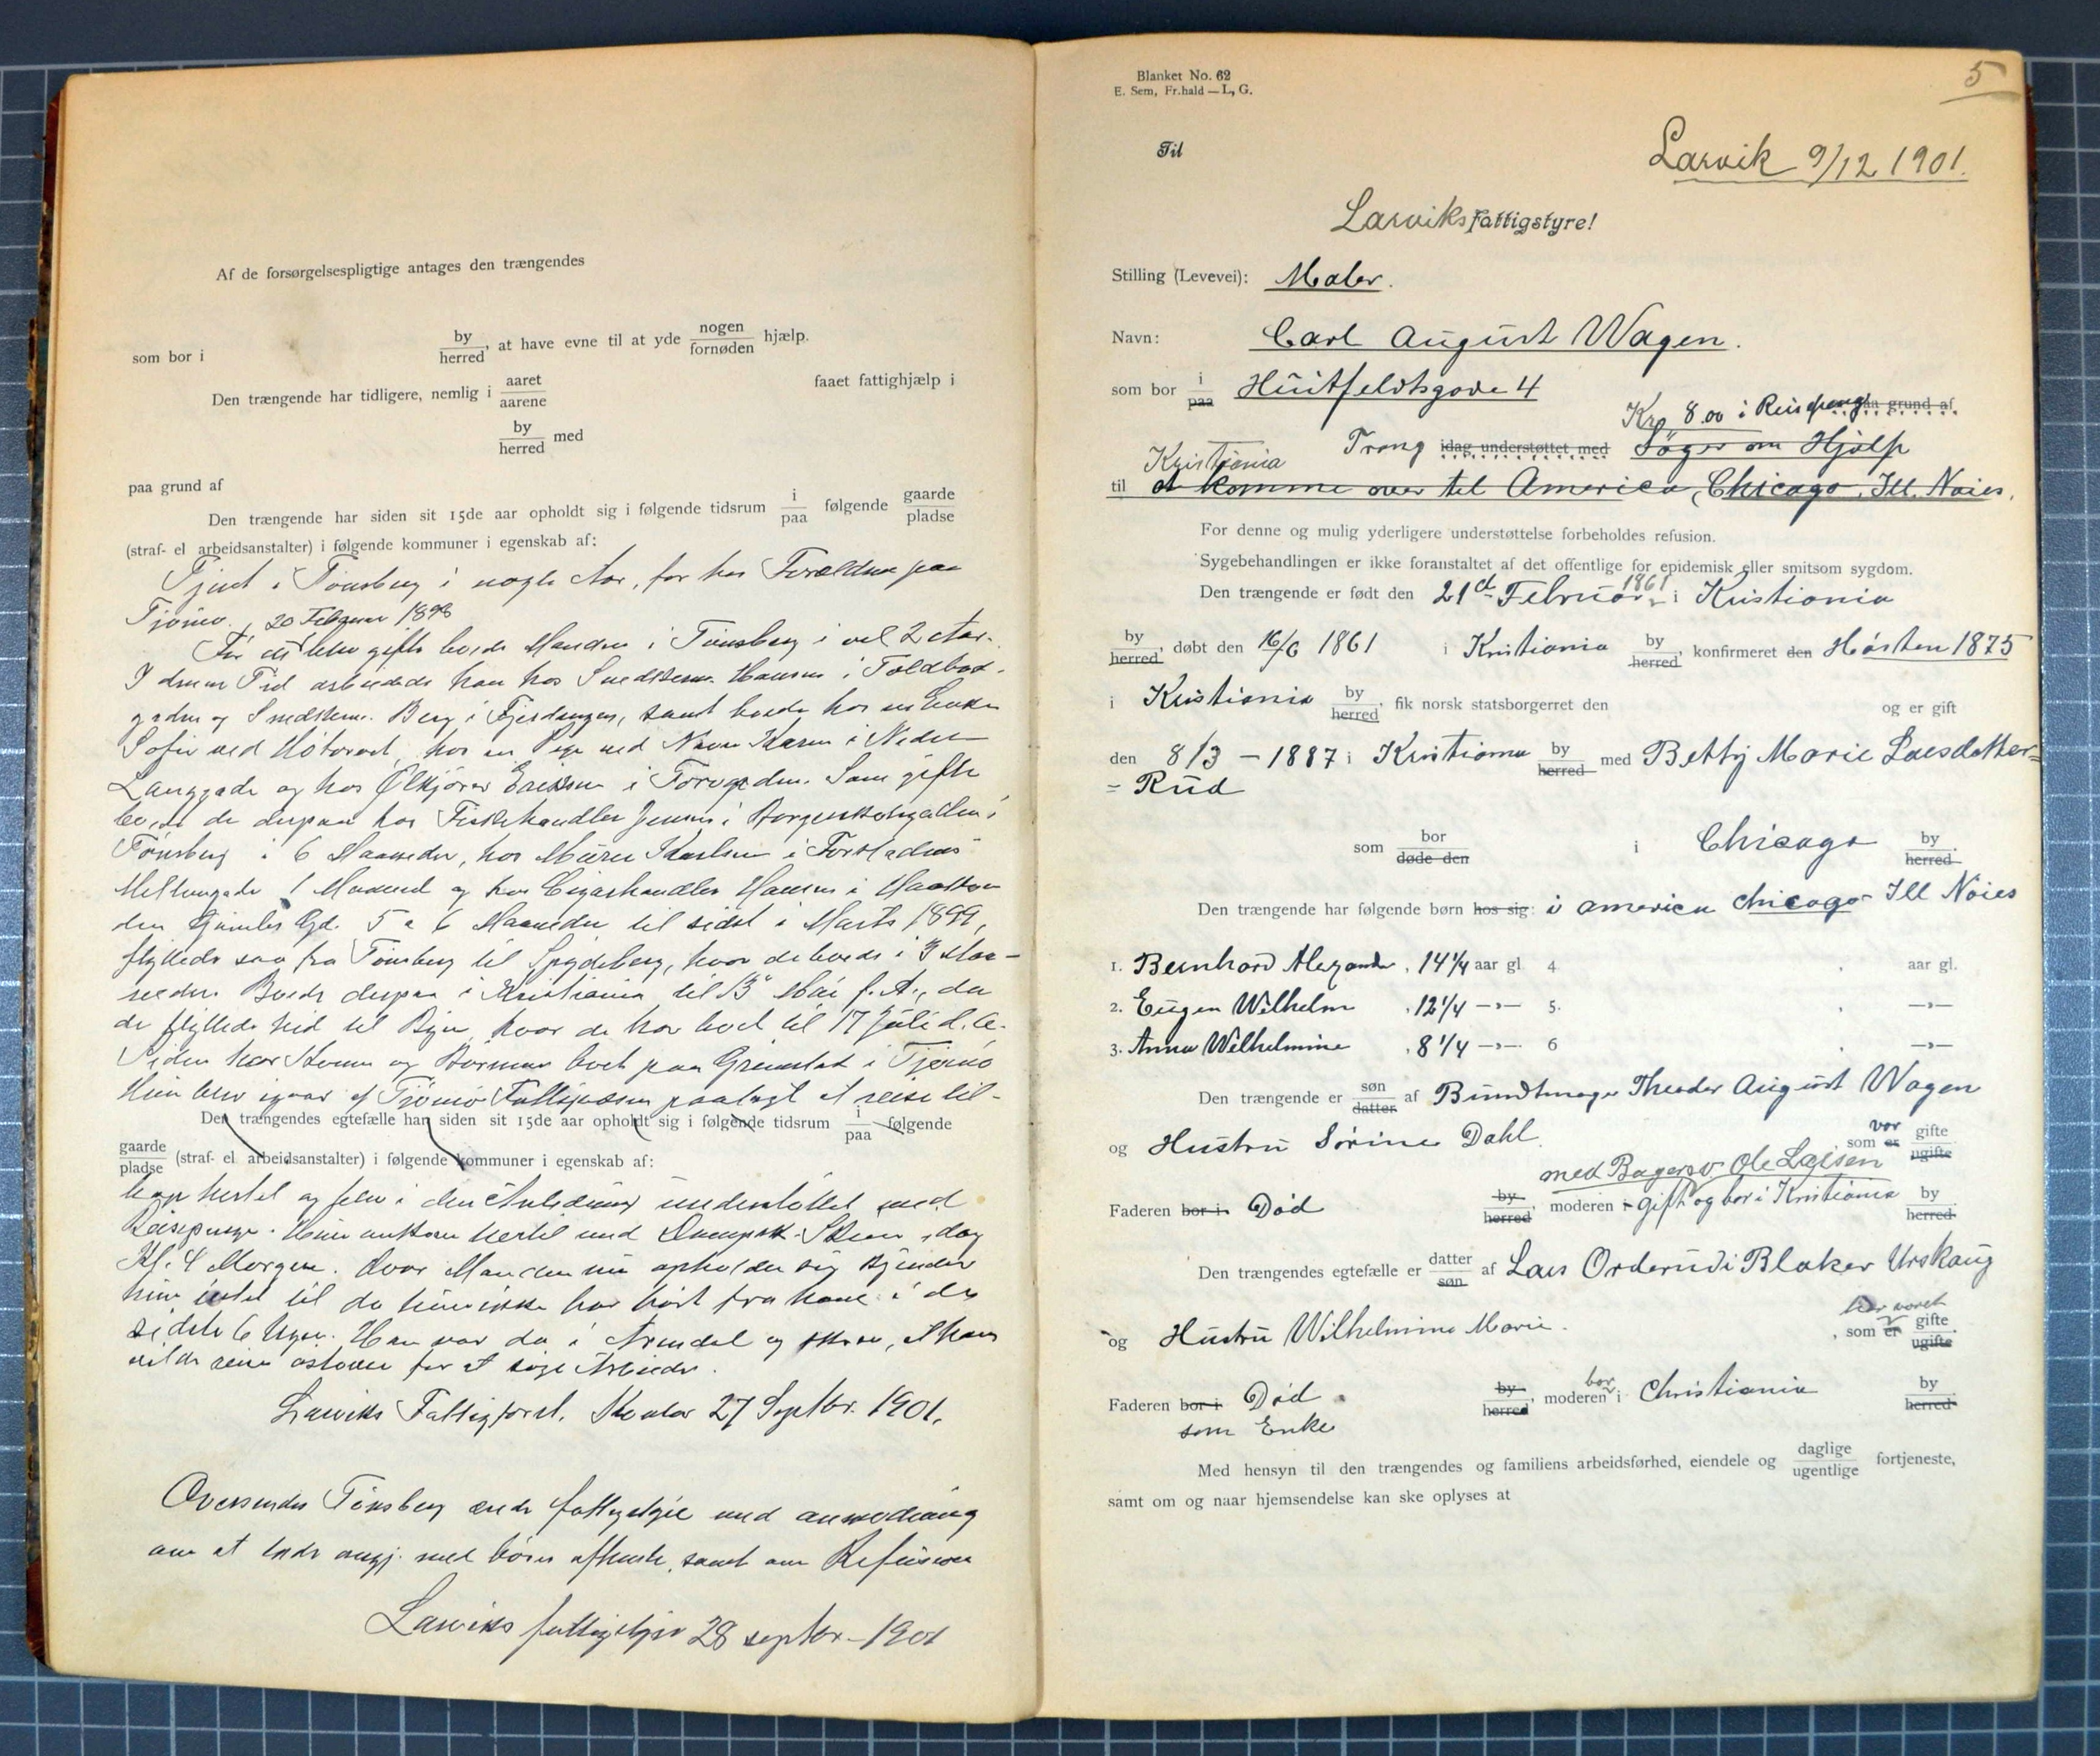 Af de forsørgelsespligtige antages den trængendes
som bor i by herred, at have evne til at yde nogen fornøden hjælp.
Den trængende har tidligere, nemlig i aaret aarene faaet fattighjælp i
by herred med
paa grund af
Den trængende har siden sit 15de aar opholdt sig i følgende tidsrum i paa følgende gaarde pladse
(straf- el arbeidsanstalter) i følgende kommuner i egenskab af:
Tjent i Tönsberg i nogle Aar, før hos Forældrene paa
Tjömö. 20 Februar 1898
Før de blev gifte boede Manden i Tönsberg i vel 2 Aar.
I denne Tid arbeidede han hos Snedkerm. Hansen i Toldbod-
gaden og Snedkerm. Berg i Fjerdingen, samt boede hos en Enke
Sofie ved Hotorvet, hos en Pige ved Navn Karen i Nedre
Langgade og hos Ölkjörer Ericksen i Torvgaden. Som gifte
boede de derpaa hos Fiskehandler Jensen i
Tönsberg i 6 Maaneder, hos Murer Karlsen i Forstadens
Mellemgade 1 Maaned og hos Cigarhandler Hansen i
den Gd. 5 a 6 Maaneder til sidst i Marts 1899,
flyttede saa fra Tönsberg til Spydeberg, hvor de boede i 3 Maa-
neder. Boede derpaa i Kristiania til 13 Mai f. A., da
de flyttede hid til Byen, hvor de har boet til 17 Juli d. A.
Siden har Konen og Börnene boet paa Grimstad i Tjömö
Hun blev igaar af Tjömö Fattigvæsen paalagt at reise til-
Den trængendes egtefælle har siden sit 15de aar opholdt sig i følgende tidsrum i paa følgende
gaarde pladse (straf- el arbeidsanstalter) i følgende kommuner i egenskab af:
bage hertil og blev i den Anledning understöttet med
Reisepenge. Hun ankom hertil med Dampsk. Skien idag
Kl. 4 Morgen. Hvor Manden nu opholder sig kjender
hun intet til da hun ikke har hört fra ham i de
sidste 6 Uger. Han var da i Arendal og skrev, at han
vilde reise östover for at söge Arbeide.
Larviks Fattigforst. Kontor 27 Septbr. 1901.
Oversendes Tönsberg ærede fattigstyre med anmodning
om at lade angj. med börn afhente, samt om Refusion
Larviks fattigstyre 28 septbr. 1901
Blanket No. 62
E. Sem, Fr.hald — L, G.
5
Til
Larvik 9/12 1901.
Larviks Fattigstyre!
Stilling (Levevei): Maler.
Navn: Carl August Wagen.
som bor i paa Huitfeldtsgade 4
Kr 8.00 i Reisepenge paa grund af
Trang idag understøttet med Søger om Hjælp
Kristiania
til at komme over til America, Chicago, Ill. Noies.
For denne og mulig yderligere understøttelse forbeholdes refusion.
Sygebehandlingen er ikke foranstaltet af det offentlige for epidemisk eller smitsom sygdom.
Den trængende er født den 21de Februar 1861 i Kristiania
by herred, døbt den 16/6 1861 i Kristiania by herred, konfirmeret den Høsten 1875
i Kristiania by herred, fik norsk statsborgerret den og er gift
den 8/3 - 1887 i Kristiania by herred med Betty Marie Larsdatter=
= Rud
som bor døde den i Chicago by herred.
Den trængende har følgende børn hos sig: i america Chicago Ill Noies
1. Bernhard Alexander, 14 1/4 aar gl. 4. , aar gl.
2. Eugen Wilhelm, 12 1/4 —»— 5. , —»—
3. Anna Wilhelmine, 8 1/4 —»— 6 , —»—
Den trængende er søn datter af Bundtmager Theodor August Wagen
og Hustru Sørine Dahl , som er var gifte ugifte
med Bagersv Ole Larsen
Faderen bor i Død by herred, moderen i gift og bor i Kristiania by herred.
Den trængendes egtefælle er datter søn af Lars Orderud i Blaker Urskaug
og Hustru Wilhelmine Marie. , som er har været gifte ugifte.
Faderen bor i Død by herred, moderen bor i Christiania by herred.
som Enke
Med hensyn til den trængendes og familiens arbeidsførhed, eiendele og daglige ugentlige fortjeneste,
samt om og naar hjemsendelse kan ske oplyses at